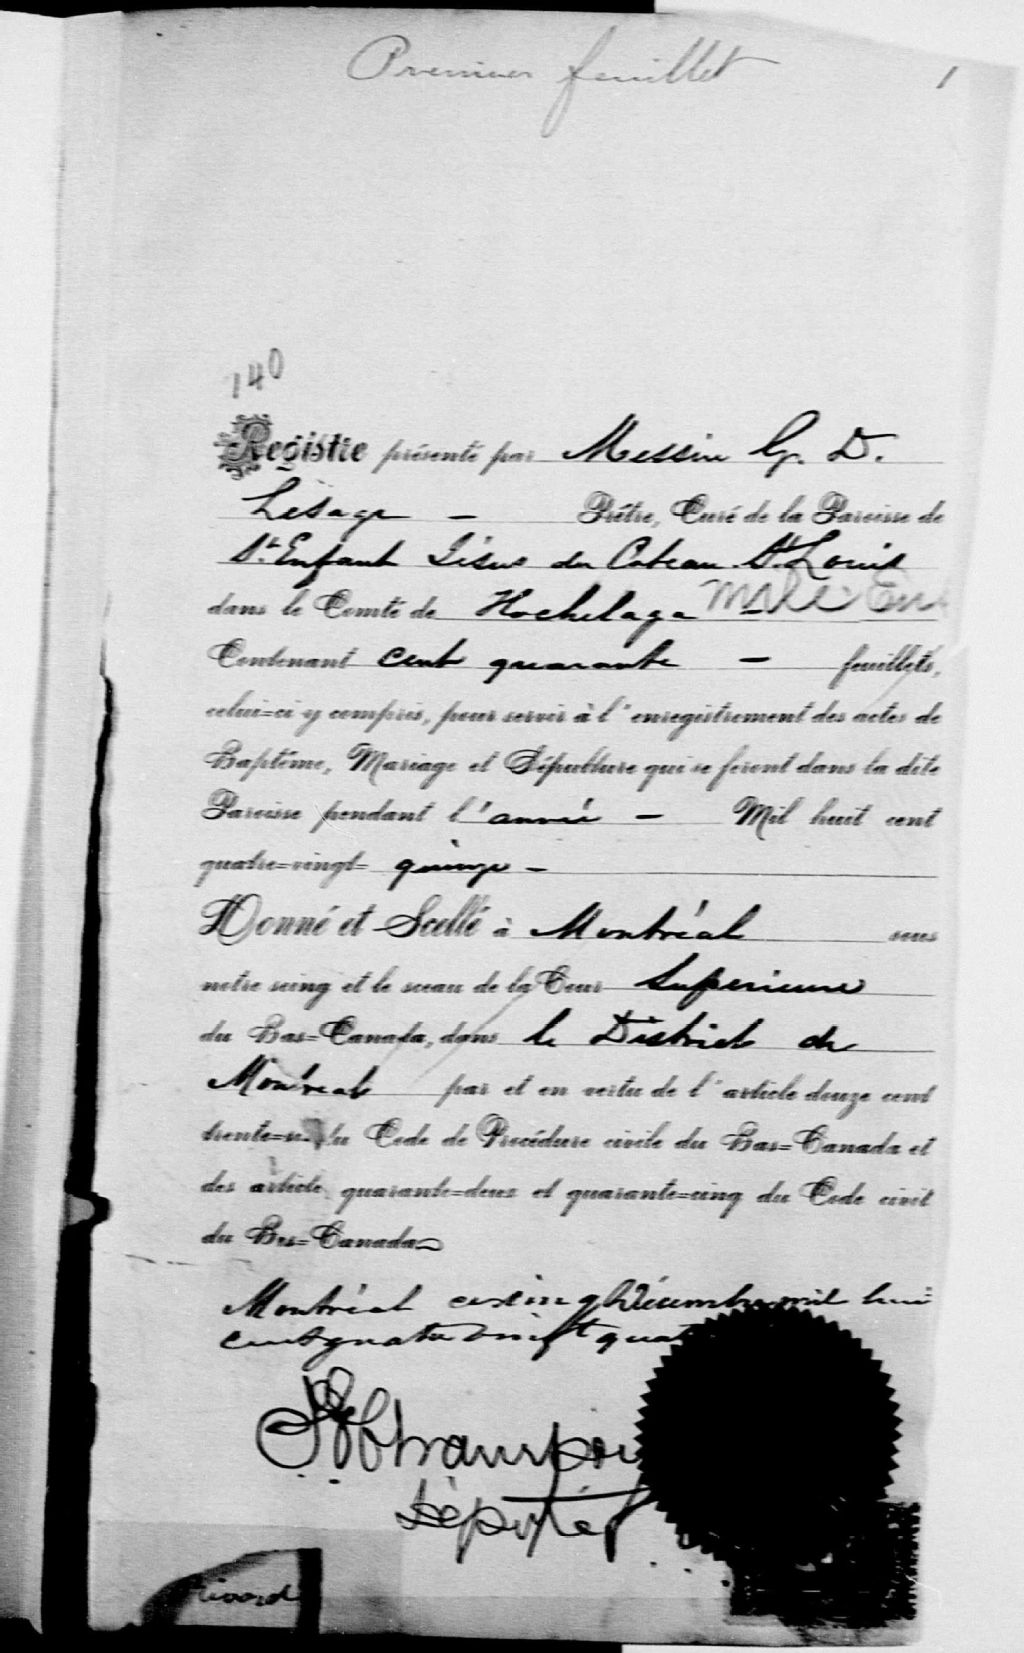 Premier feuillet 1
140
Registre présenté par Messire G. D.
Lesage – Prêtre, Curé de la Paroisse de
St. Enfant Jésus du Coteau St. Louis
dans le Comté de Hochelaga – Mile End
Contenant cent quarante – feuillets,
celui=ci y compris, pour servir à l'enregistrement des actes de
Baptême, Mariage et Sépulture qui se feront dans la dite
Paroisse pendant l'année – Mil huit cent
quatre=vingt= quinze –
Donné et Scellé à Montréal sous
notre seing et le sceau de la Cour Superieure
du Bas=Canada, dans le District de
Montreal par et en vertu de l'article douze cent
trente= du Code de Procédure civile du Bas=Canada et
des article quarante=deux et quarante=cinq du Code civil
du Bas=Canada
Montréal ce cinq Décembre mil hui
cent quatre vingt quat
Député